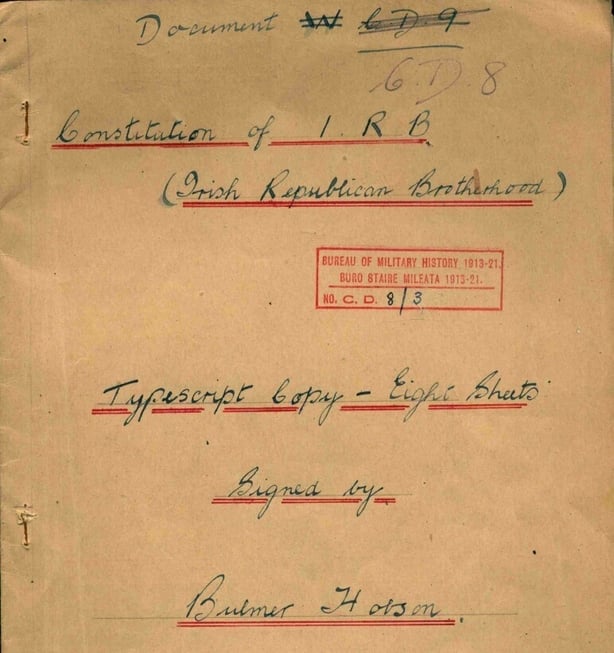 Document W C.D.9
C.D.8
Constitution of I.R.B
(Irish Republican Brotherhood)
BUREAU OF MILITARY HISTORY 1913-21.
BURO STAIRE MILEATA 1913-21.
NO. C. D. 8/3
Typescript Copy - Eight Sheets
Signed by
Bulmer Hobson.